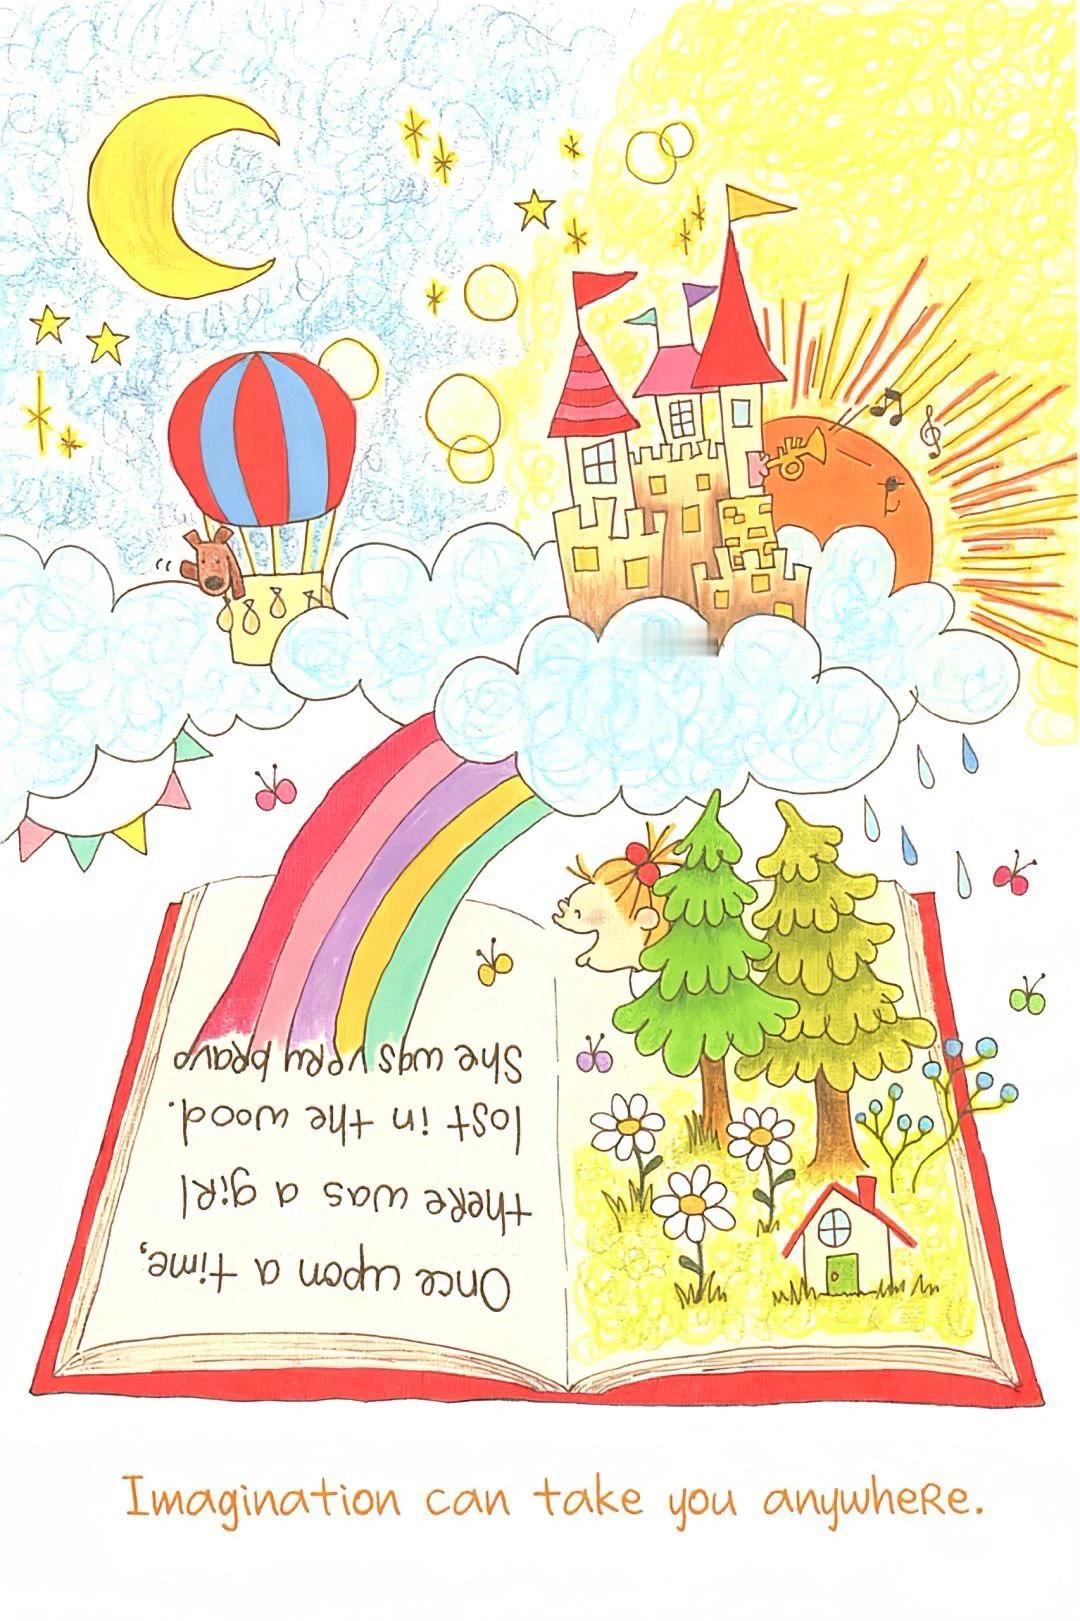 Once upon a time,
there was a girl
lost in the wood.
She was very brave
Imagination can take you anywhere.